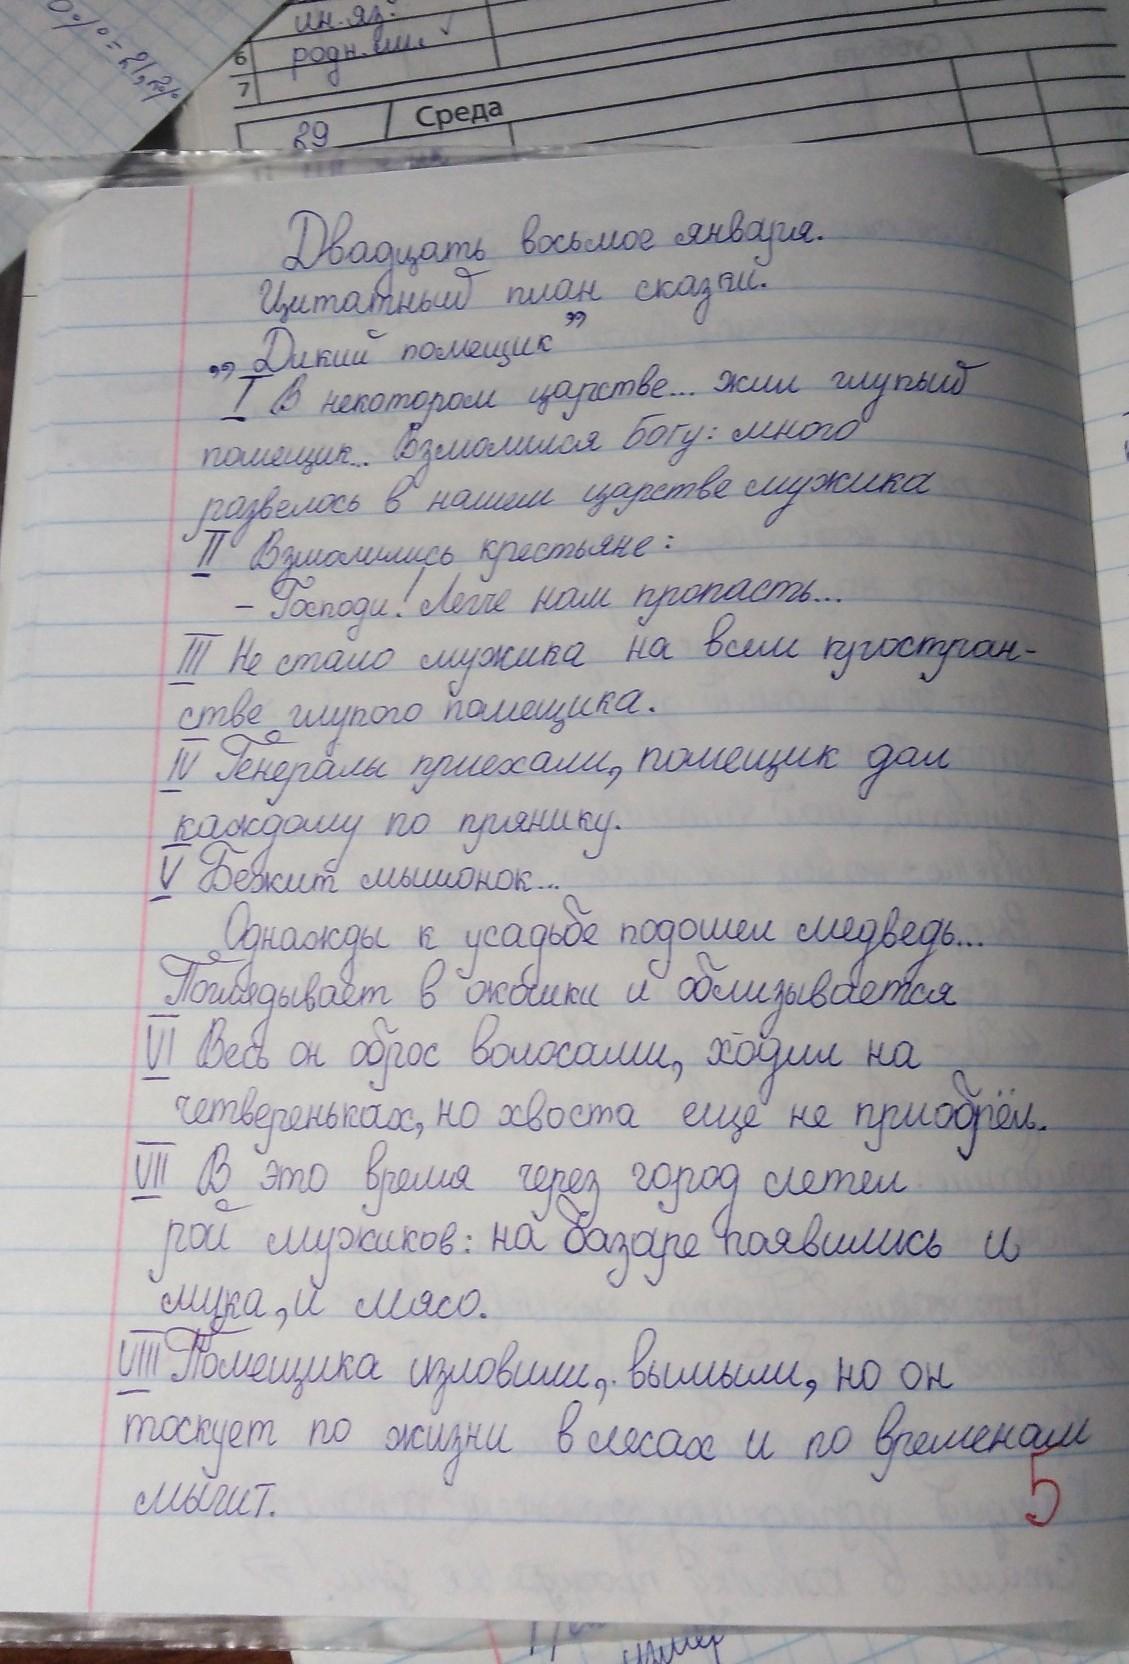 ин.яз.
6 родн.
7
29 Среда
Двадцать восьмое января.
Цитатный план сказки.
„Дикий помещик”
I В некотором царстве... жил глупый
помещик... Взмолился Богу: много
развелось в нашем царстве мужика
II Взмолились крестьяне:
- Господи! Легче нам пропасть...
III Не стало мужика на всем простран-
стве глупого помещика.
IV Генералы приехали, помещик дал
каждому по прянику.
V Бежит мышонок...
Однажды к усадьбе подошел медведь...
Поглядывает в окошки и облизывается
VI Весь он оброс волосами, ходил на
четвереньках, но хвоста еще не приобрёл.
VII В это время через город летел
рой мужиков: на базаре появились и
мука, и мясо.
VIII Помещика изловили, вымыли, но он
тоскует по жизни в лесах и по временам
мычит.
5